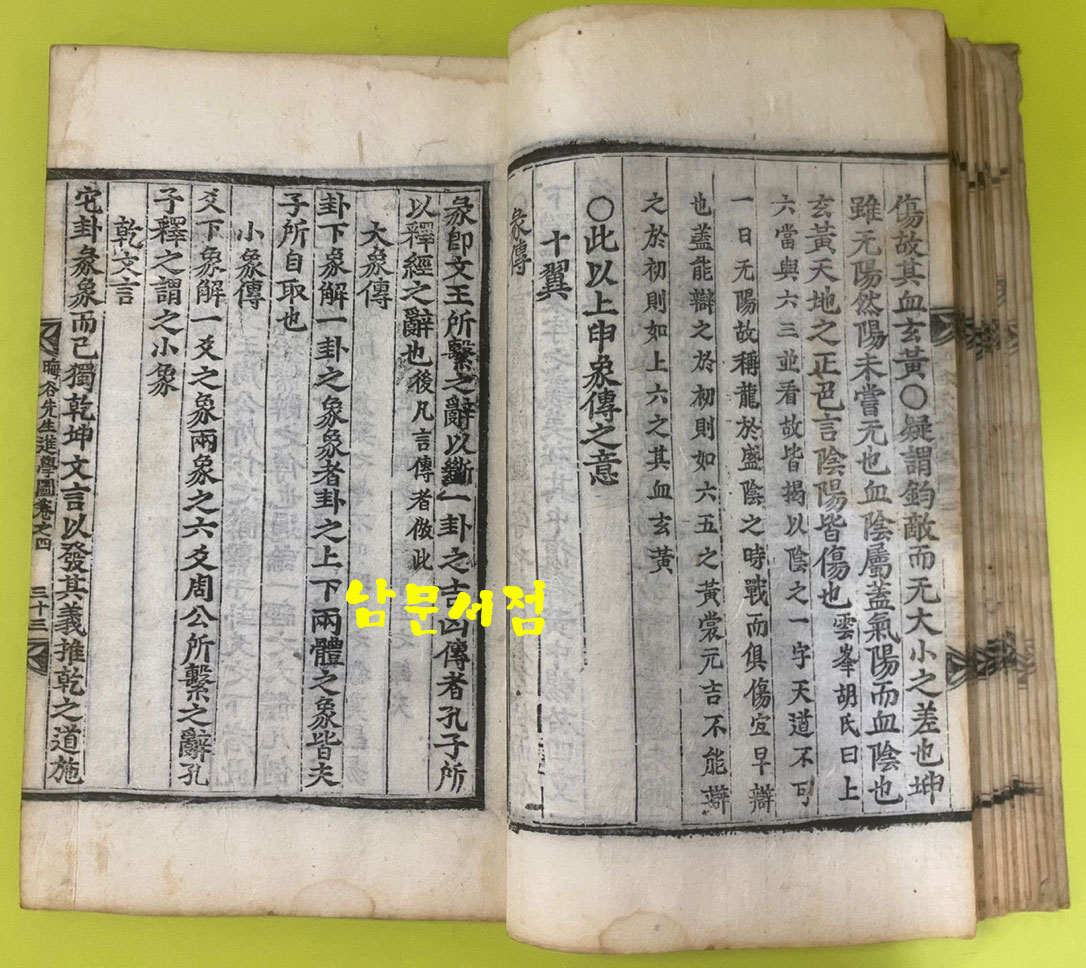 傷故其血玄黃○疑謂鈞敵而无大小之差也坤
雖无陽然陽未嘗无也血陰屬蓋氣陽而血陰也
玄黃天地之正色言陰陽皆傷也雲峯胡氏曰上
六當與六三並看故皆揭以陰之一字天道不可
一日无陽故稱龍於盛陰之時戰而俱傷宜早辯
也蓋能辯之於初則如六五之黃裳元吉不能辯
之於初則如上六之其血玄黃
○此以上申象傳之意
十翼
彖傳
彖卽文王所繫之辭以斷一卦之吉凶傳者孔子所
以釋經之辭也後凡言傳者倣此
大象傳
卦下象解一卦之象象者卦之上下兩體之象皆夫
子所自取也
小象傳
爻下象解一爻之象兩象之六爻周公所繫之辭孔
子釋之謂之小象
乾文言
它卦彖象而已獨乾坤文言以發其義推乾之道施
晦谷先生進學圖卷之四 三十三
남문서점